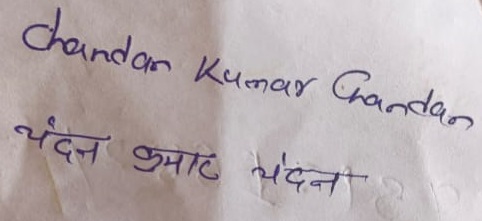 Chandan Kumar Chandan
चंदन कुमार चंदन